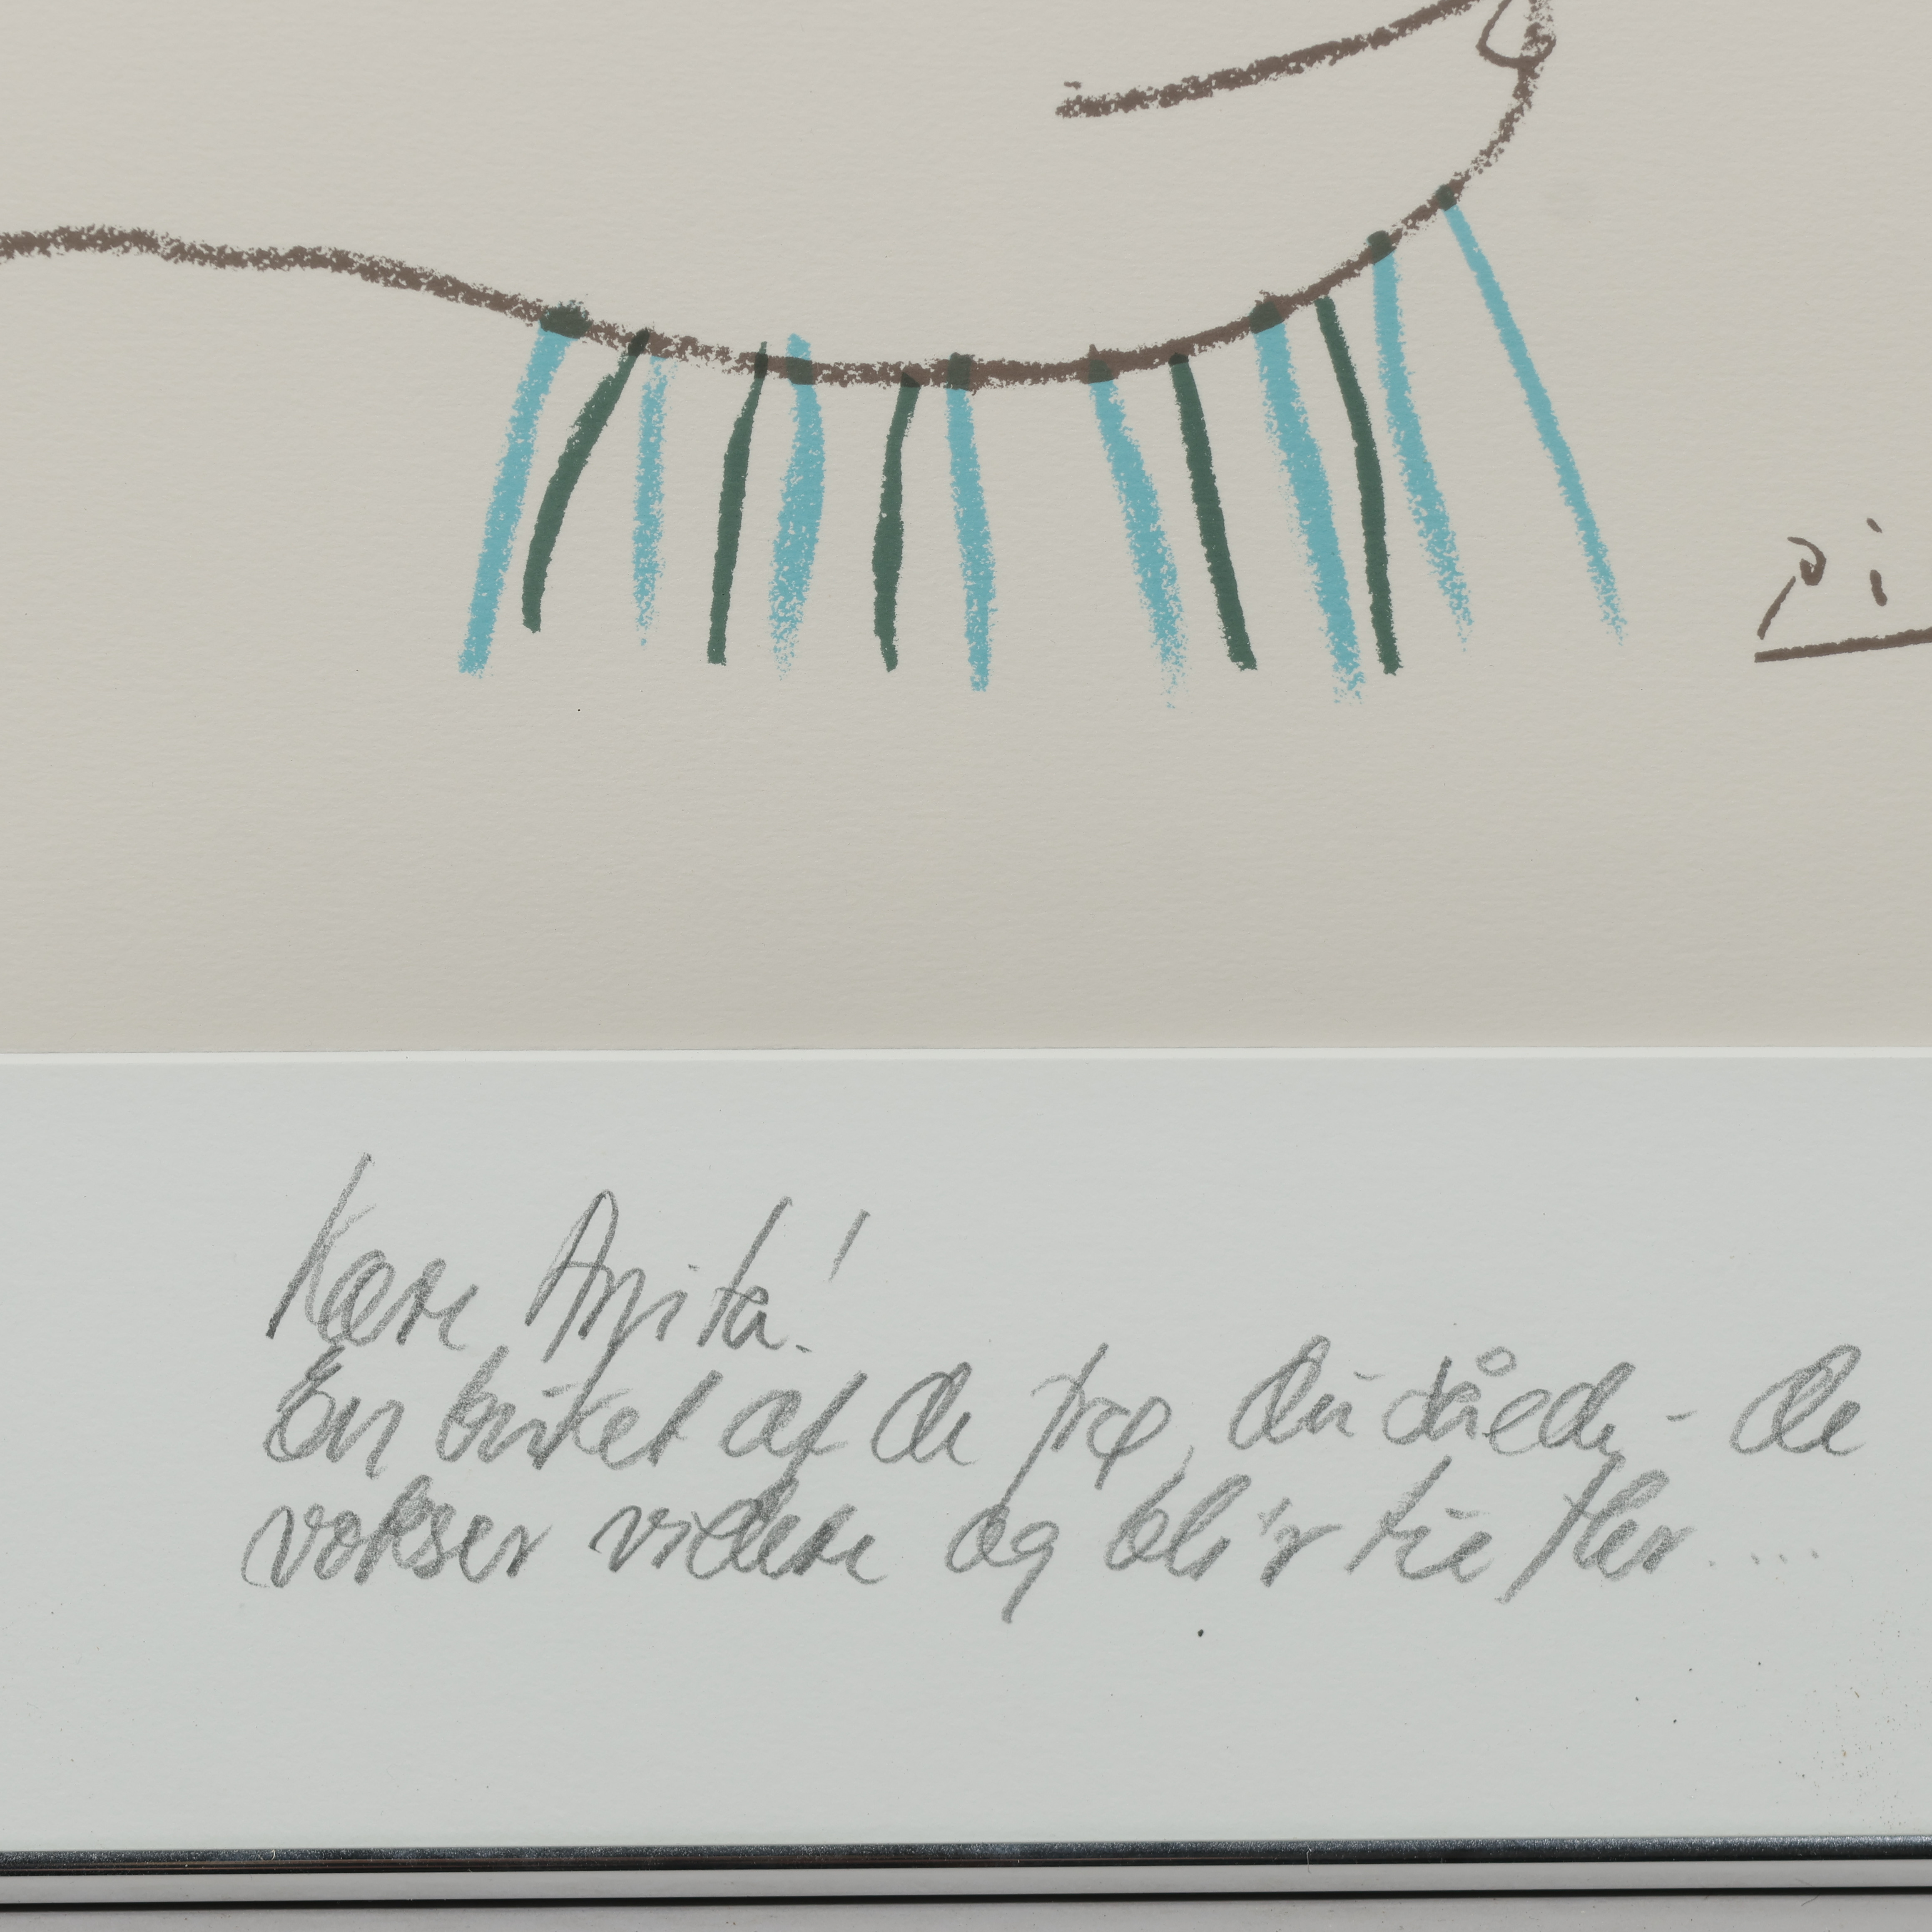 Pi
Kære Anita!
En buket af de frø, du såede - de
vokser videre og bli'r til fler....